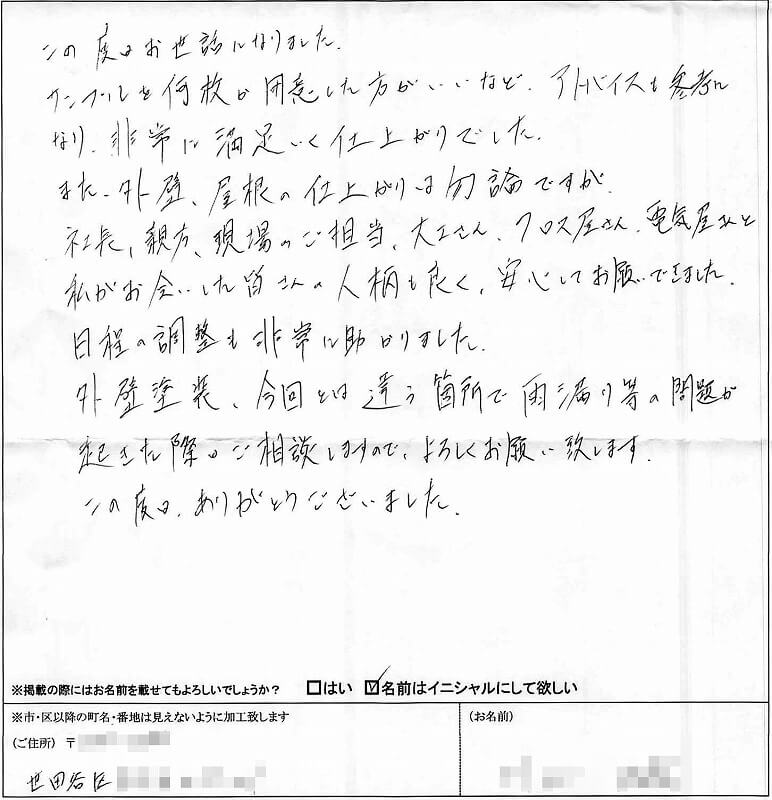 この度はお世話になりました。
サンプルを何枚か用意した方がいいなど、アドバイスも参考に
なり、非常に満足いく仕上がりでした。
また、外壁、屋根の仕上がりは勿論ですが、
社長、親方、現場のご担当、大工さん、クロス屋さん、電気屋さんと
私がお会いした皆さんの人柄も良く、安心してお願いできました。
日程の調整も非常に助かりました。
外壁塗装、今回とは違う箇所で雨漏り等の問題が
起きた際はご相談しますので、よろしくお願い致します。
この度は、ありがとうございました。
※掲載の際にはお名前を載せてもよろしいでしょうか? □はい ☑名前はイニシャルにして欲しい
※市・区以降の町名・番地は見えないように加工致します
(ご住所) 〒
世田谷区
(お名前)